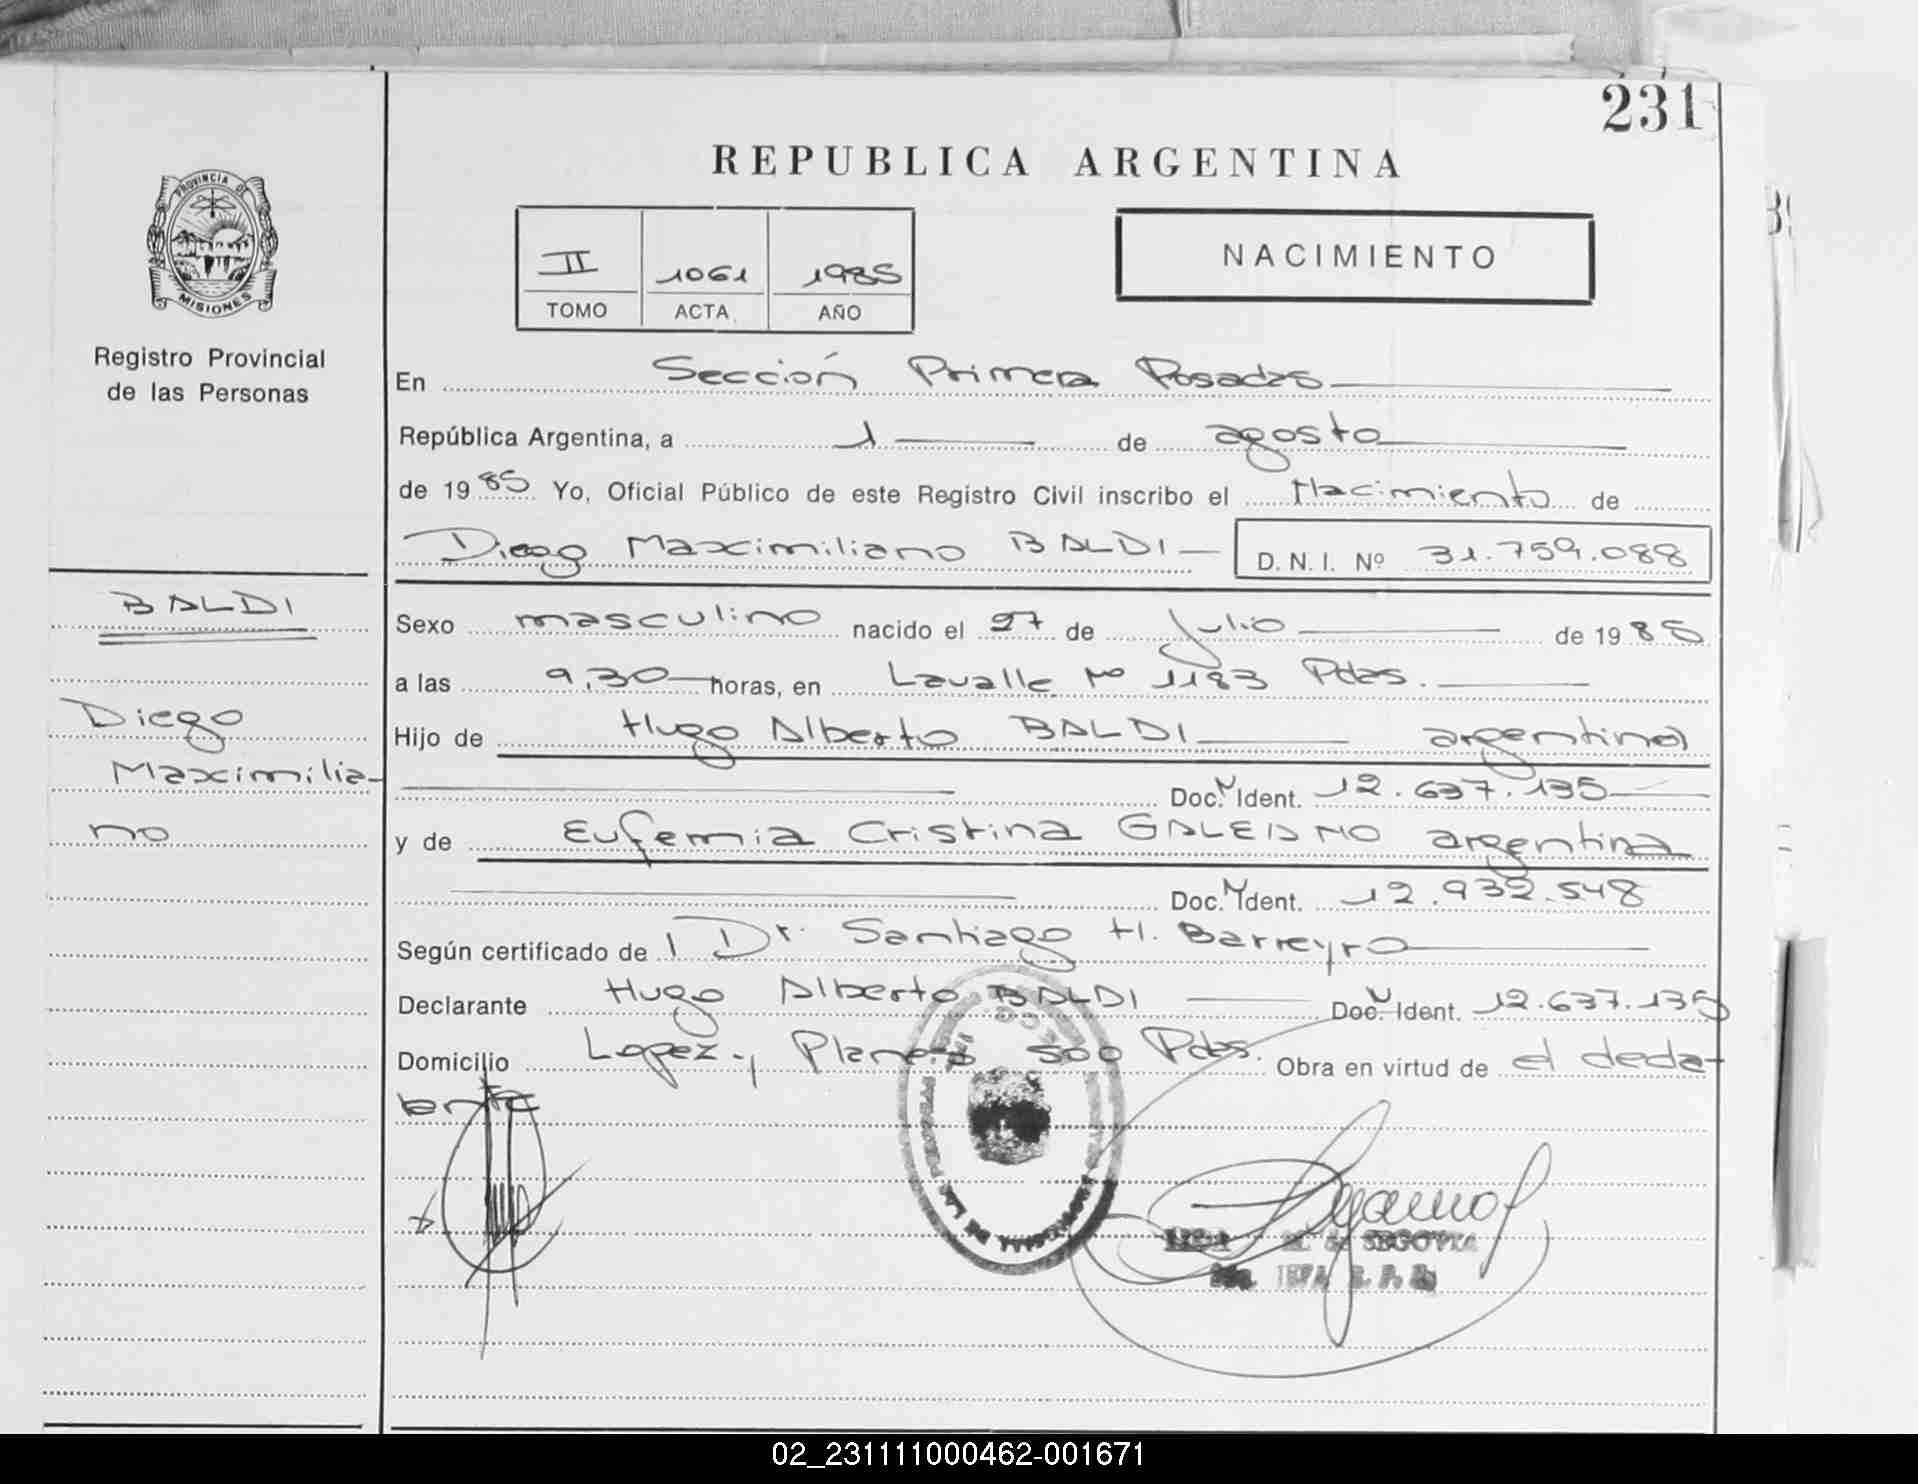 231
REPUBLICA ARGENTINA
PROVINCIA DE
MISIONES
Registro Provincial
de las Personas
II 1061 1985
TOMO ACTA AÑO
NACIMIENTO
En Sección Primera Posadas
República Argentina, a 1 de agosto
de 1985 Yo, Oficial Público de este Registro Civil inscribo el Nacimiento de
Diego Maximiliano BALDI D. N. I. Nº 31.759.088
BALDI
Diego
Maximilia-
no
Sexo masculino nacido el 27 de julio de 1985
a las 9,30 horas, en Lavalle Nº 1183 Pdas.
Hijo de Hugo Alberto BALDI argentino
Doc. Ident. 12.637.135
y de Eufemia Cristina GALEANO argentina
Doc. Ident. 12.932.548
Según certificado de Dr. Santiago H. Barreyro
Declarante Hugo Alberto BALDI Doc. Ident. 12.637.135
Domicilio Lopez y Planes 500 Pdas. Obra en virtud de el decla-
rante
M. de SEGOVIA
02_231111000462-001671